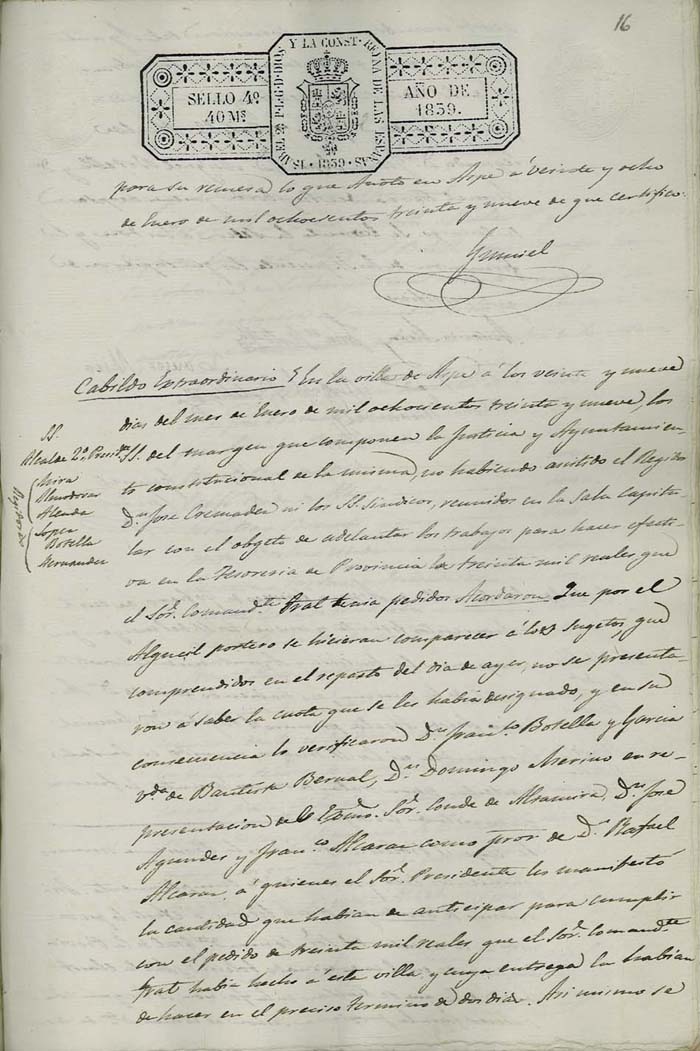 16
SELLO 4º
40 Ms
ISABEL 2ª P. L. G. D. DIOS Y LA CONST. REINA DE LAS ESPAÑAS 1839
AÑO DE
1839.
para su remesa lo que Anoto en Aspe á veinte y ocho
de Enero de mil ochocientos treinta y nueve de que certifico
Cabildo Extraordinario En la villa de Aspe á los veinte y nueve
dias del mes de Enero de mil ochocientos treinta y nueve, los
SS. del margen que componen la Justicia y Ayuntamien-
to constitucional de la misma, no habiendo asistido el Regidor
Dn. Jose Cremades ni los SS. Sindicos, reunidos en la Sala Capitu-
lar con el objeto de adelantar los trabajos para hacer efecti-
va en la Tesoreria de Provincia los treinta mil reales que
el Sor. Comandte. Gral tenia pedidos Acordaron: Que por el
Alguacil portero se hicieran comparecer á los sugetos, que
comprendidos en el reparto del dia de ayer, no se presenta-
ron á saber la cuota que se les habia designado, y en su
consecuencia lo verificaron Dn. Franco. Botella y Garcia
vda. de Bautista Bernal, Dn. Domingo Merino en re-
presentacion del Exmo. Sor. Conde de Altamira, Dn. Jose
Agendes y Franco. Alcaraz como pror. de Dn. Rafael
Alcaraz, á quienes el Sor. Presidente les manifestó
la cantidad que habian de anticipar para cumplir
con el pedido de treinta mil reales que el Sor. Comandte.
Gral habia hecho á esta villa, y cuya entrega la habian
de hacer en el preciso termino de dos dias. Asi mismo se
SS.
Alcalde 2º. Presidte.
Regidores
Mira
Almodovar
Alenda
Lopez
Botella
Hernandez